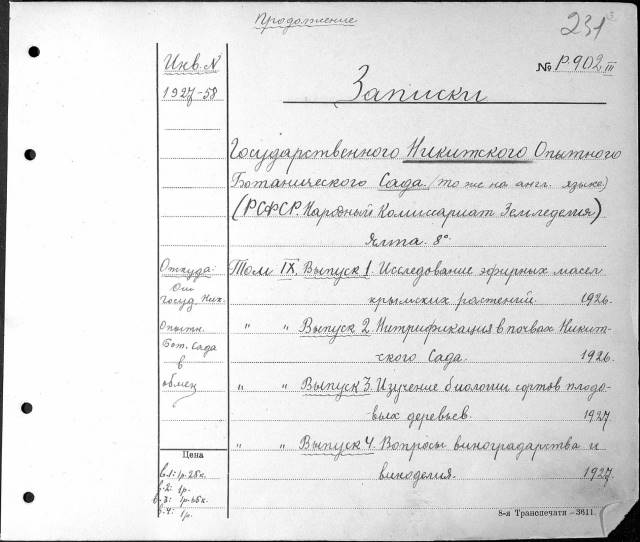 Продолжение
231
3
Инв. N
№ Р.902 III
1927-58
Записки
Государственного Никитского Опытного
Ботанического Сада. (то же на англ. языке.)
(РСФСР. Народный Комиссариат Земледелия)
Ялта. 8°.
Откуда:
От
Госуд. Ник.
Опытн.
Бот. Сада
в
обмен
Том IX. Выпуск 1. Исследование эфирных масел
крымских растений. 1926.
" " Выпуск 2. Нитрификация в почвах Никит-
ского Сада. 1926.
" " Выпуск 3. Изучение биологии сортов плодо-
вых деревьев. 1927
" " Выпуск 4. Вопросы виноградарства и
виноделия. 1927.
Цена
в.1: 1р.25к.
в.2: 1р.
в.3: 1р.65к.
в.4: 1р.
8-я Транспечати — 3611.